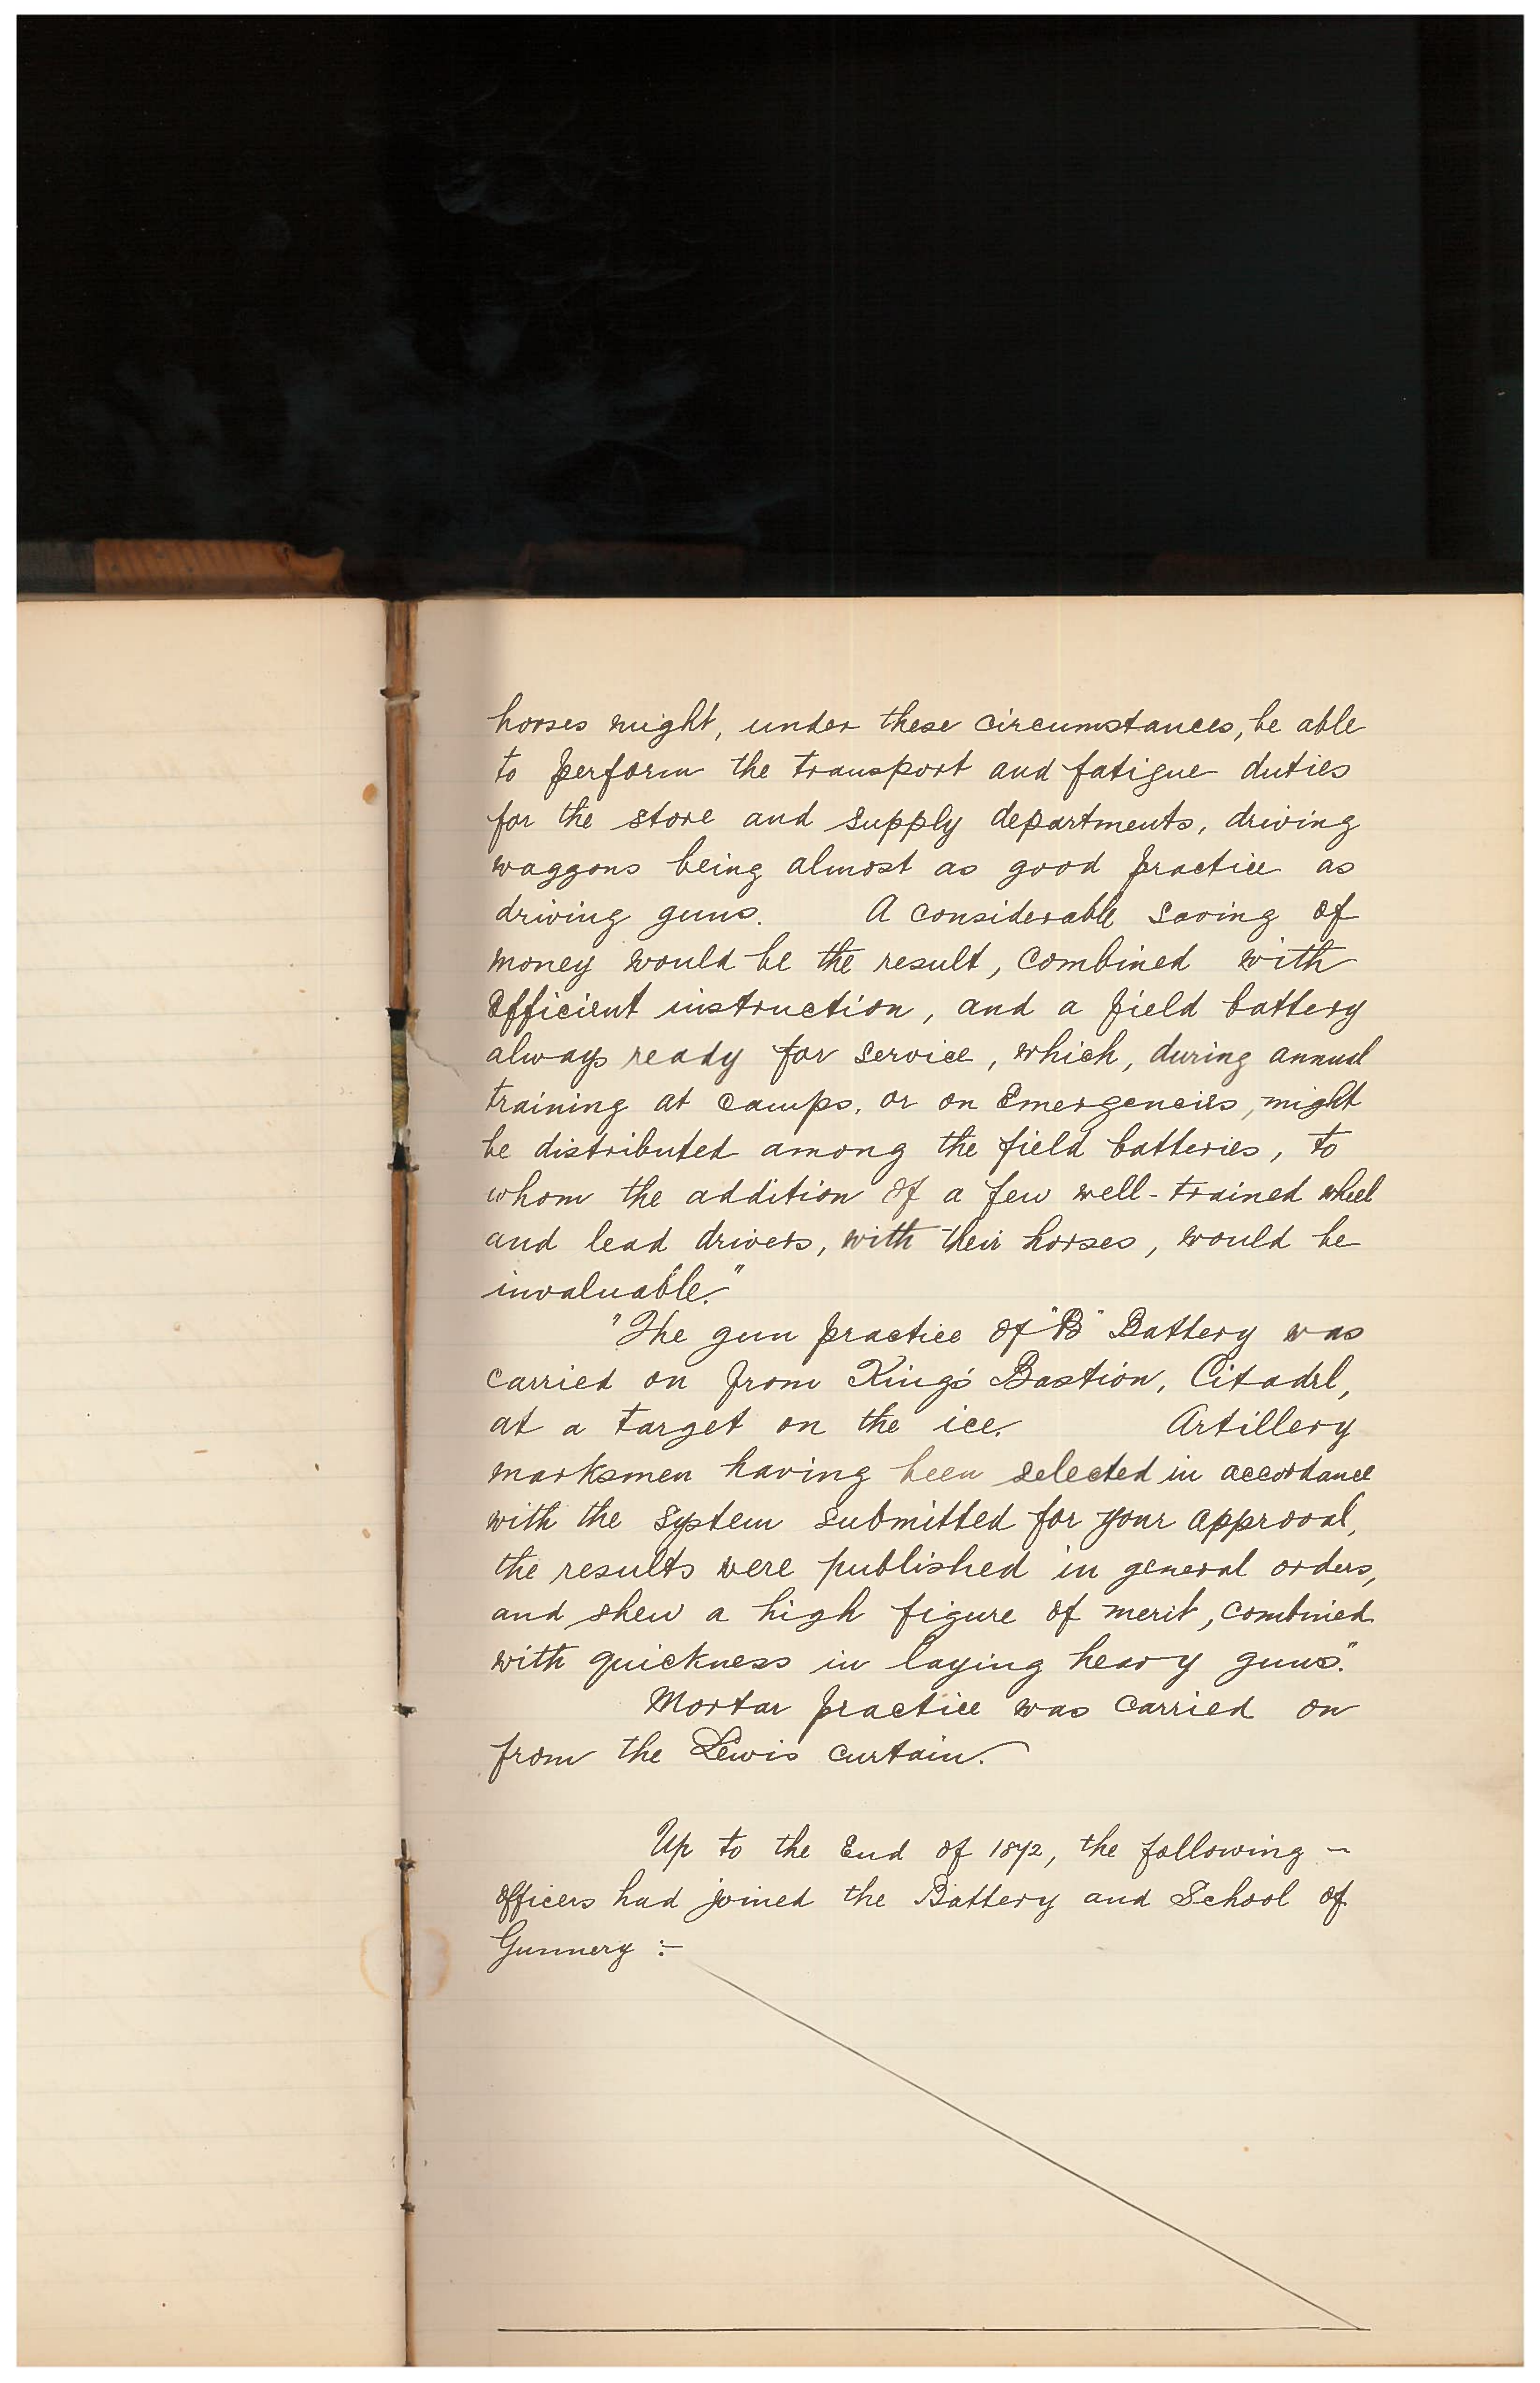 horses might, under these circumstances, be able
to perform the transport and fatigue duties
for the store and supply departments, driving
waggons being almost as good practice as
driving guns. A considerable saving of
money would be the result, combined with
efficient instruction, and a field battery
always ready for service, which, during annual
training at camps, or on emergencies, might
be distributed among the field batteries, to
whom the addition of a few well-trained wheel
and lead drivers, with their horses, would be
invaluable."
"The gun practice of "B" Battery was
carried on from King's Bastion, Citadel,
at a target on the ice. Artillery
marksmen having been selected in accordance
with the system submitted for your approval,
the results were published in general orders,
and shew a high figure of merit, combined
with quickness in laying heavy guns."
Mortar practice was carried on
from the Lewis curtain.
Up to the End of 1872, the following -
officers had joined the Battery and School of
Gunnery :-